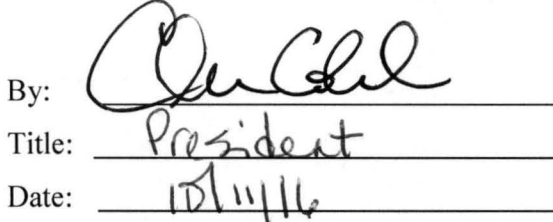 By:
Title: President
Date: 10/11/16